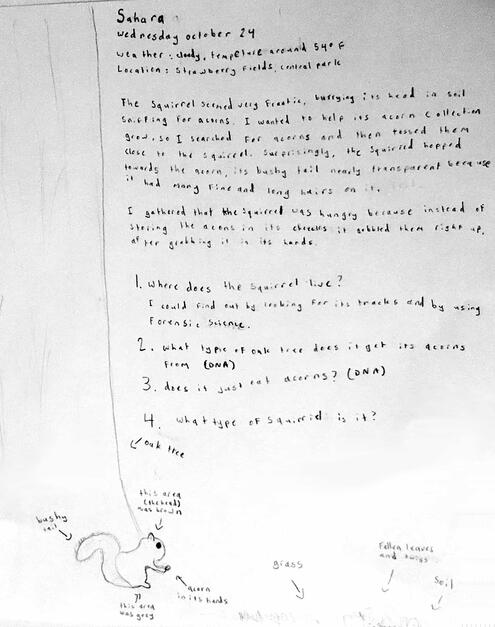 Sahara
wednesday october 24
weather: cloudy, tempeture around 54° F
Location: Strawberry Fields, central park
The Squirrel seemed very Frantic, burrying its head in soil
sniffing for acorns. I wanted to help its acorn collection
grow, so I searched for acorns and then tossed them
close to the squirrel. Surprisingly, the squirrel hopped
towards the acorn, its bushy tail nearly transparent because
it had many fine and long hairs on it.
I gathered that the squirrel was hungry because instead of
storing the acorns in its cheeks it gobbled them right up,
after grabbing it in its hands.
1. where does the squirrel live?
I could find out by looking for its tracks and by using
Forensic Science.
2. what type of oak tree does it get its acorns
from (DNA)
3. does it just eat acorns? (DNA)
4. what type of squirrel is it?
oak tree
this area
(the head)
was brown
bushy
tail
acorn
in its hands
this area
was grey
grass
Fallen leaves
and twigs
Soil